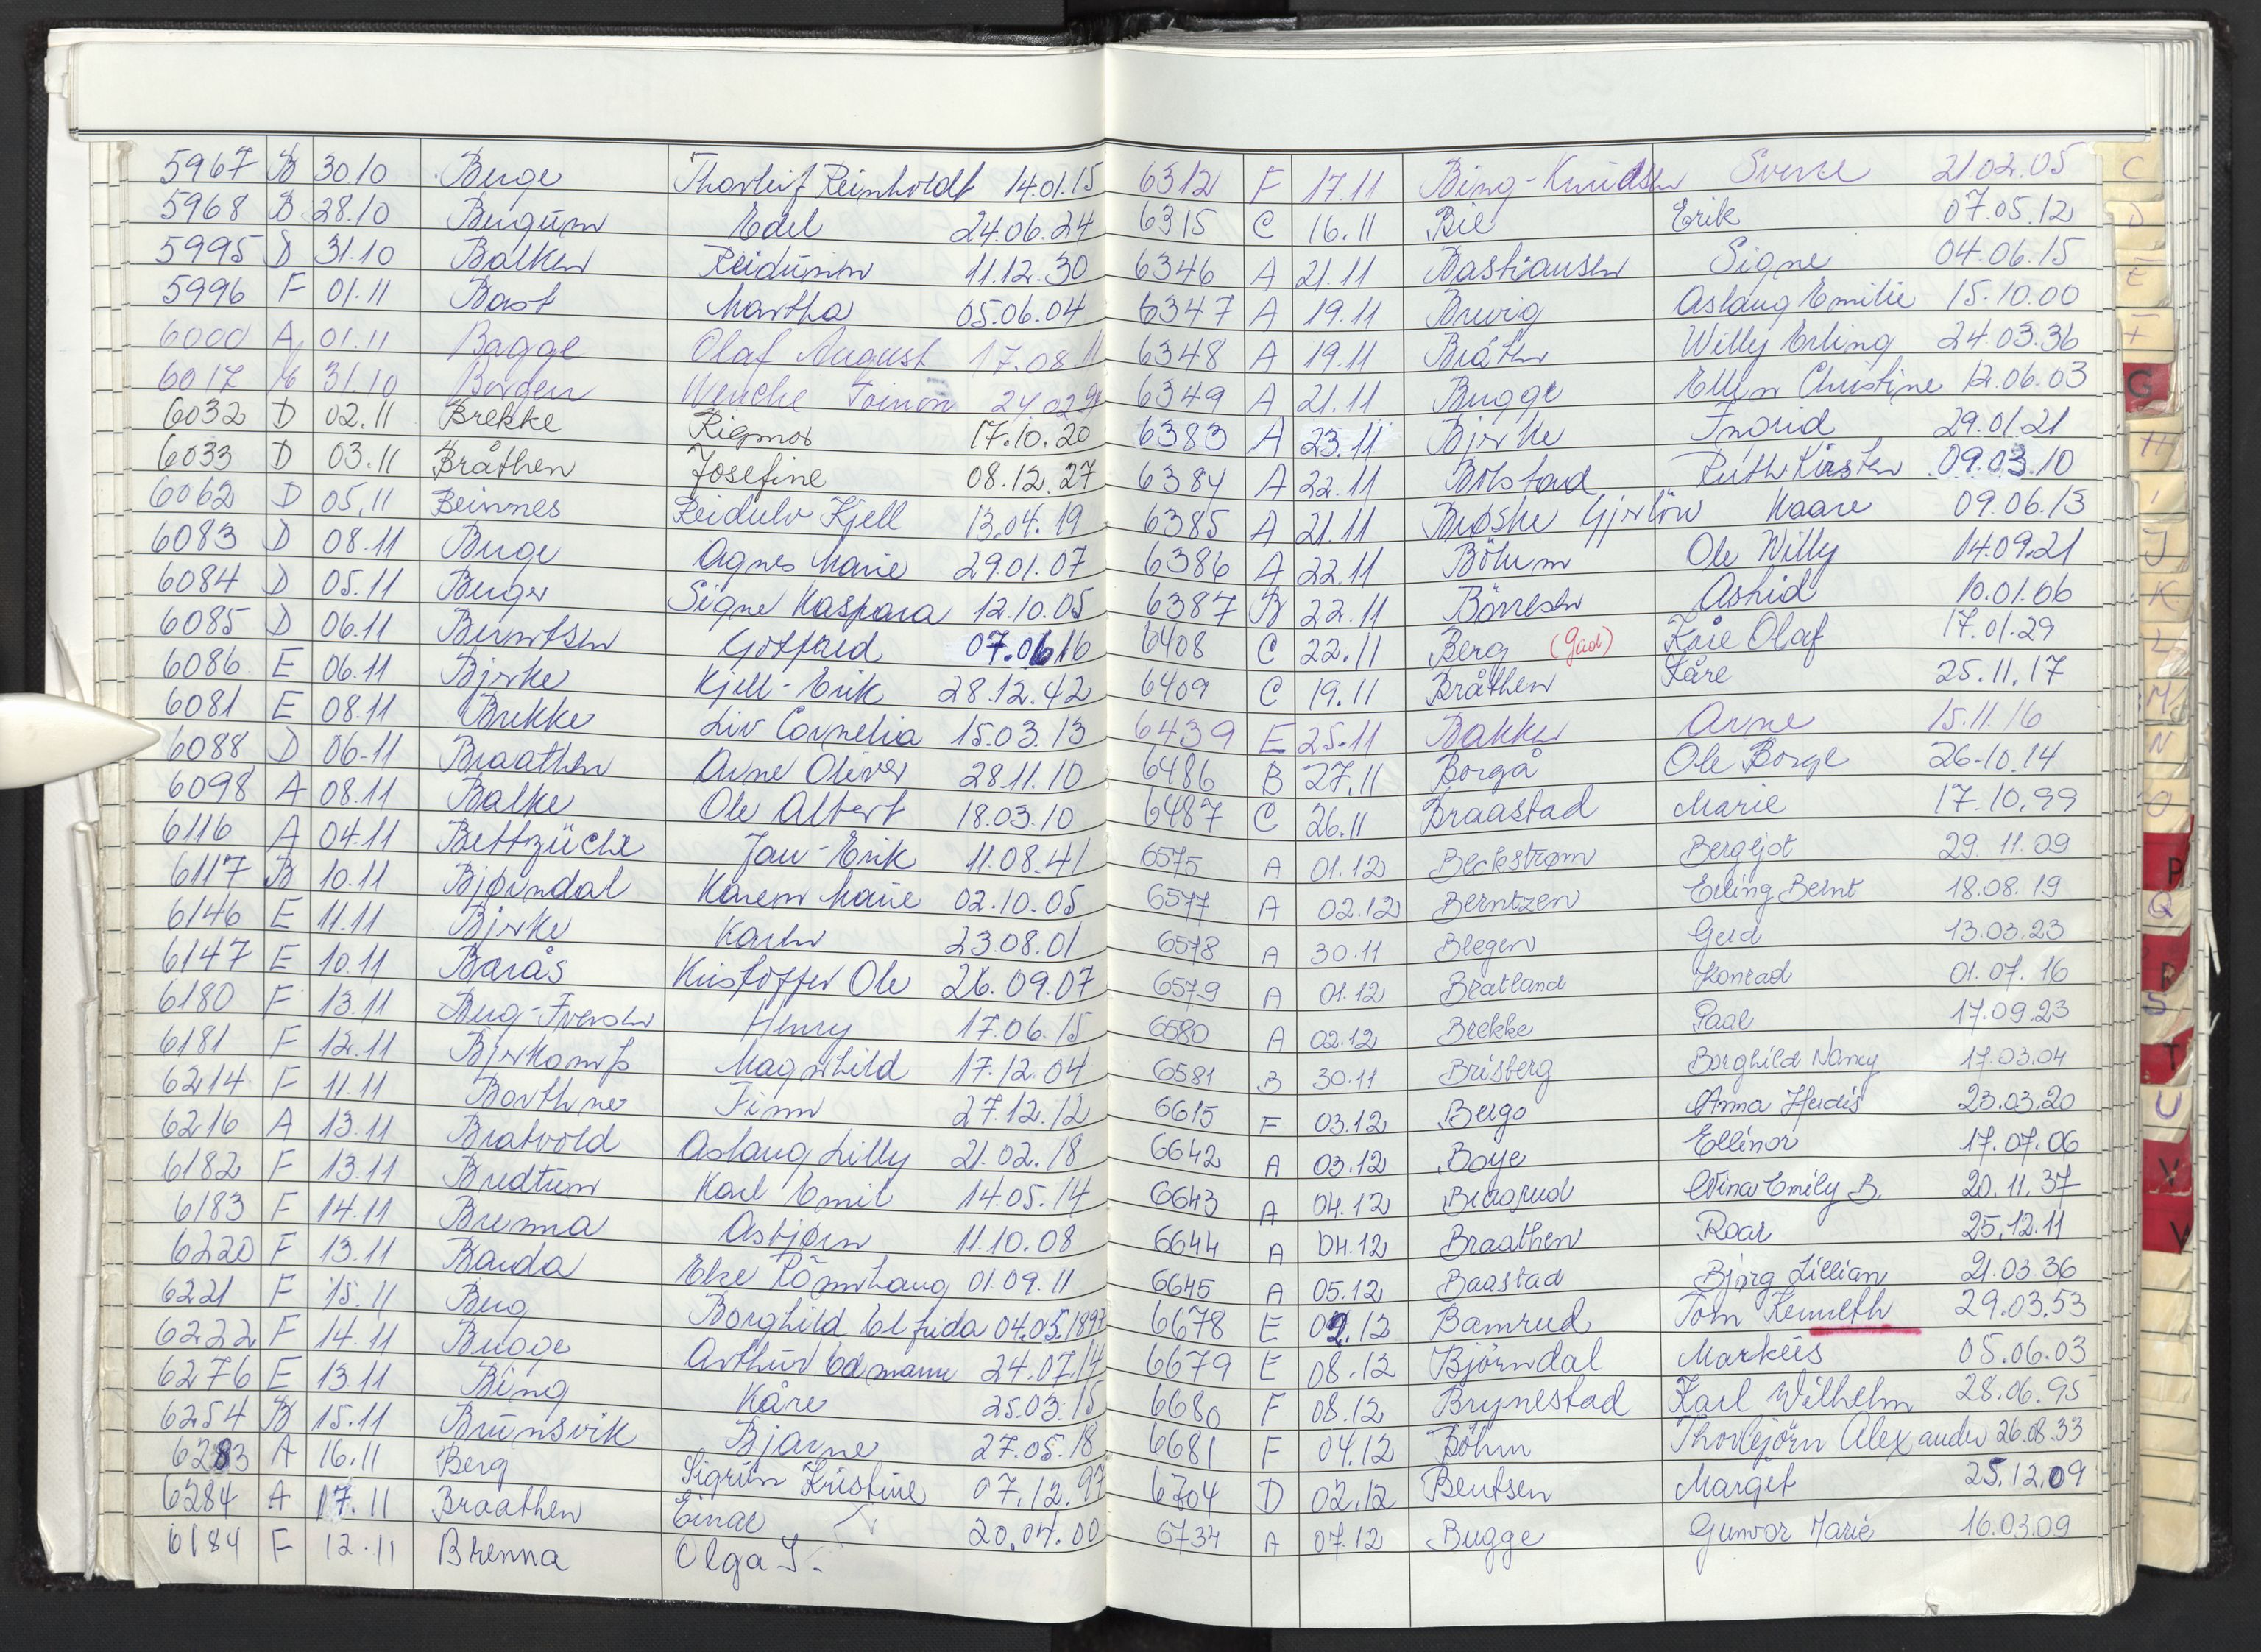 5967 B 30.10 Berge Thorleif Reinholdt 14.01.15
5968 B 28.10 Bergum Edel 24.06.24
5995 D 31.10 Balken Reidunn 11.12.30
5996 F 01.11 Bast Martha 05.06.04
6000 A 01.11 Bagge Olaf August 17.08.11
6017 E 31.10 Borgen Wenche 24.02
6032 D 02.11 Brekke Rigmor 17.10.20
6033 D 03.11 Bråthen Josefine 08.12.27
6062 D 05.11 Beinnes Reidulv Kjell 13.04.19
6083 D 08.11 Berge Agnes Marie 29.01.07
6084 D 05.11 Berger Signe Kaspara 12.10.05
6085 D 06.11 Berntsen Gotfred 07.06.16
6086 E 06.11 Bjerke Kjell-Erik 28.12.42
6081 E 08.11 Brekke Liv Cornelia 15.03.13
6088 D 06.11 Braathen Arne Oliver 28.11.10
6098 A 08.11 Balke Ole Albert 18.03.10
6116 A 04.11 Bettzüche Jan-Erik 11.08.41
6117 B 10.11 Bjørndal Karen Marie 02.10.05
6146 E 11.11 Bjerke Karen 23.08.01
6147 E 10.11 Barås Kristoffer Ole 26.09.07
6180 F 13.11 Berg-Iversen Henry 17.06.15
6181 F 12.11 Bjerkamp Magnhild 17.12.04
6214 F 11.11 Borthne Finn 27.12.12
6216 A 13.11 Bratvold Aslaug Lilly 21.02.18
6182 F 13.11 Bredtun Karl Emil 14.05.14
6183 F 14.11 Brenna Asbjørn 11.10.08
6220 F 13.11 Barda Else Rönnhaug 01.09.11
6221 F 15.11 Berg Borghild Elfrida 04.05.1897
6222 F 14.11 Bugge Arthur Edmann 24.07.14
6276 E 13.11 Bing Kåre 25.03.15
6254 B 15.11 Brunsvik Bjarne 27.05.18
6283 A 16.11 Berg Sigrun Kristine 07.12.97
6284 A 17.11 Braathen Einar 20.04.00
6184 F 12.11 Brenna Olga I.
6312 F 17.11 Bing-Knudsen Sverre 21.02.05
6315 C 16.11 Bie Erik 07.05.12
6346 A 21.11 Bastiansen Signe 04.06.15
6347 A 19.11 Brevig Aslaug Emilie 15.10.00
6348 A 19.11 Bråten Willy Erling 24.03.36
6349 A 21.11 Bugge Ellen Christine 12.06.03
6383 A 23.11 Bjerke Ingrid 29.01.21
6384 A 22.11 Bolstad Ruth Kirsten 09.03.10
6385 A 21.11 Brøske Gjerlöw Kaare 09.06.13
6386 A 22.11 Böhum Ole Willy 14.09.21
6387 B 22.11 Börresen Astrid 10.01.06
6408 C 22.11 Berg (Gad) Kåre Olaf 17.01.29
6409 C 19.11 Bråthen Kåre 25.11.17
6439 E 25.11 Bakken Arne 15.11.16
6486 B 27.11 Borgå Ole Borge 26.10.14
6487 C 26.11 Braastad Marie 17.10.99
6575 A 01.12 Beckstrøm Bergljot 29.11.09
6577 A 02.12 Berntzen Erling Bernt 18.08.19
6578 A 30.11 Blegen Gerd 13.03.23
6579 A 01.12 Bratland Konrad 01.07.16
6580 A 02.12 Brekke Paal 17.09.23
6581 B 30.11 Brisberg Borghild Nancy 17.03.04
6615 F 03.12 Bergo Anna Herdis 23.03.20
6642 A 03.12 Boye Ellinor 17.07.06
6643 A 04.12 Braarud Nina Emily B. 20.11.37
6644 A 04.12 Braathen Roar 25.12.11
6645 A 05.12 Baastad Bjørg Lillian 21.03.36
6678 E 02.12 Bamrud Tom Kenneth 29.03.53
6679 E 08.12 Björndal Markus 05.06.03
6680 F 08.12 Brynestad Karl Wilhelm 28.06.95
6681 F 04.12 Böhm Thorbjörn Alexander 26.08.33
6704 D 02.12 Bentsen Margit 25.12.09
6734 A 07.12 Bugge Gunvor Marie 16.03.09
C
D
E
F
G
H
I
J
K
L
M
N
O
P
Q
R
S
T
U
V